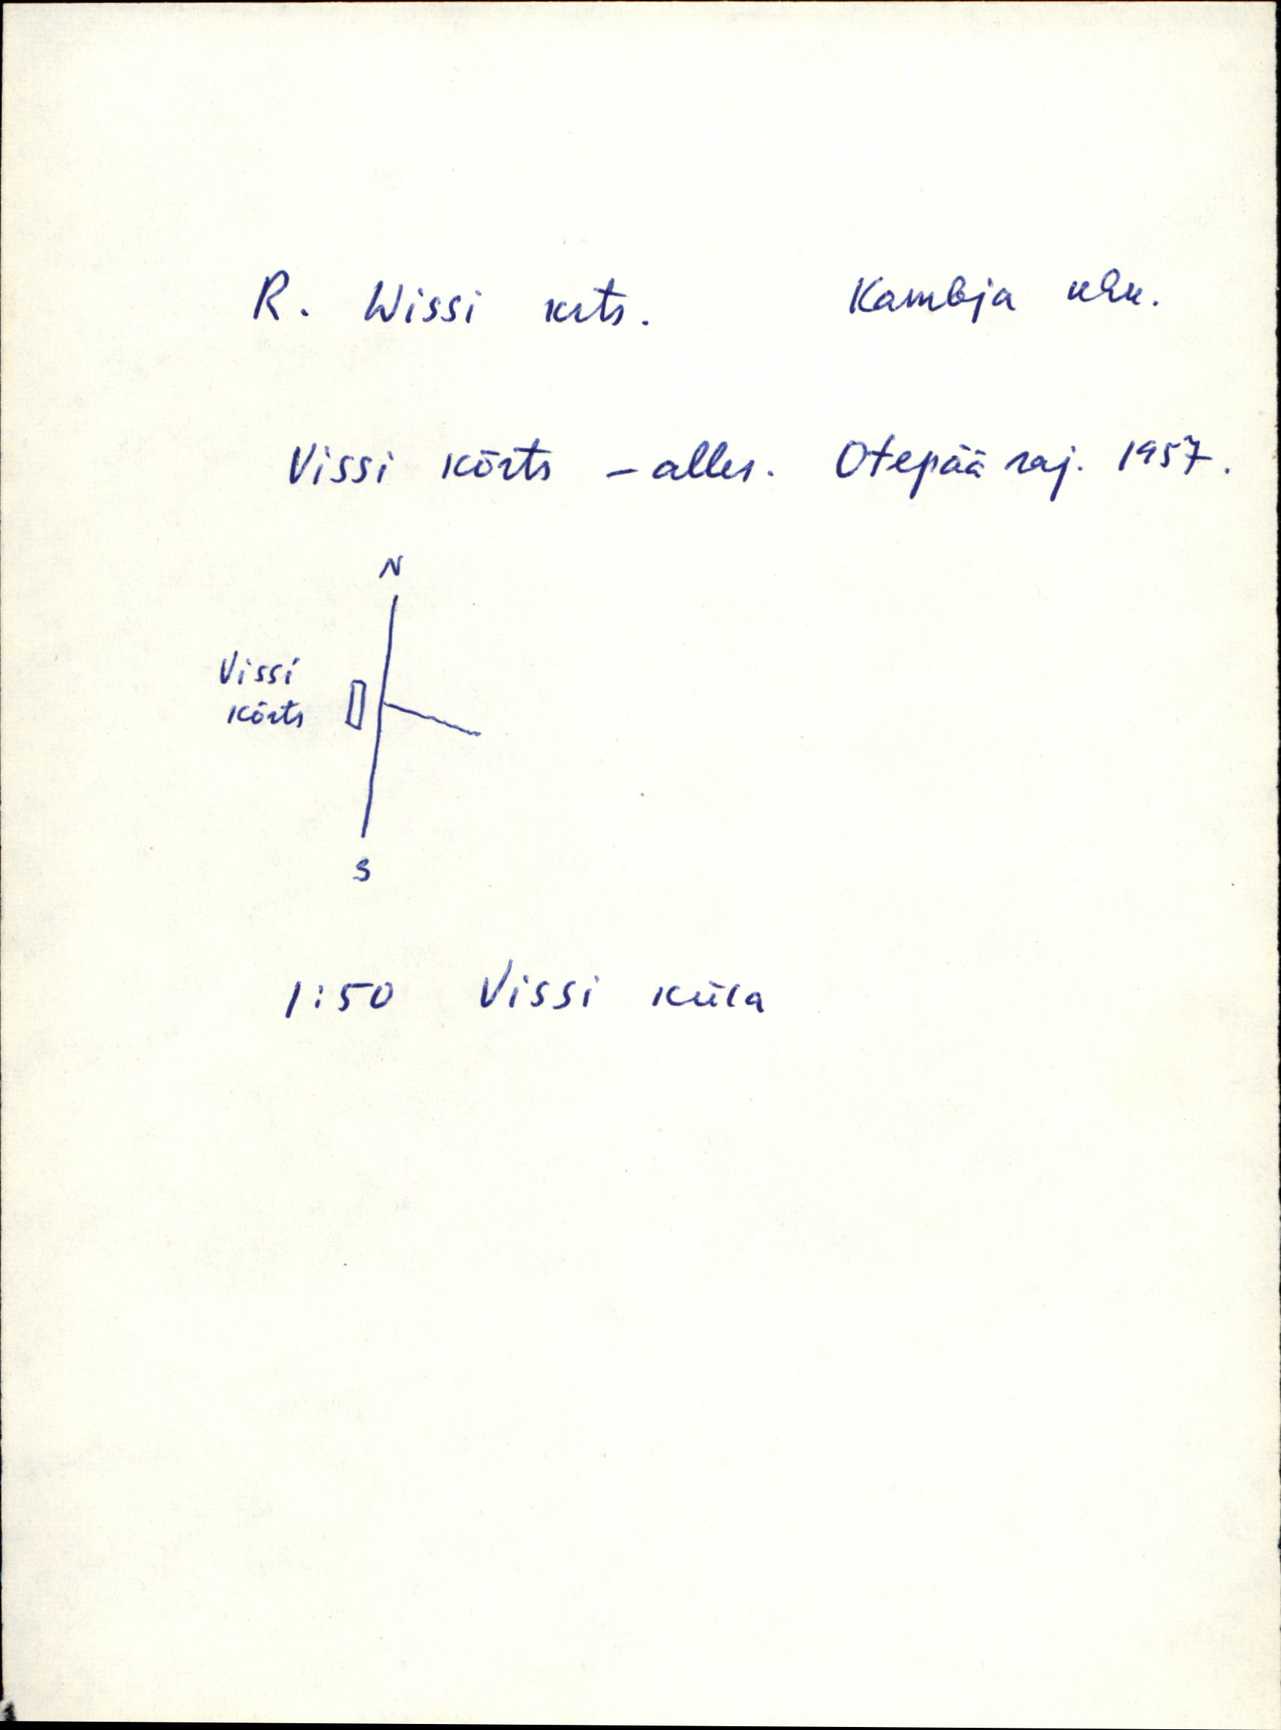 R. Wissi krts. Kambja khk.
Vissi kõrts – alles. Otepää raj. 1957.
N
Vissi
kõrts
S
1:50 Vissi küla